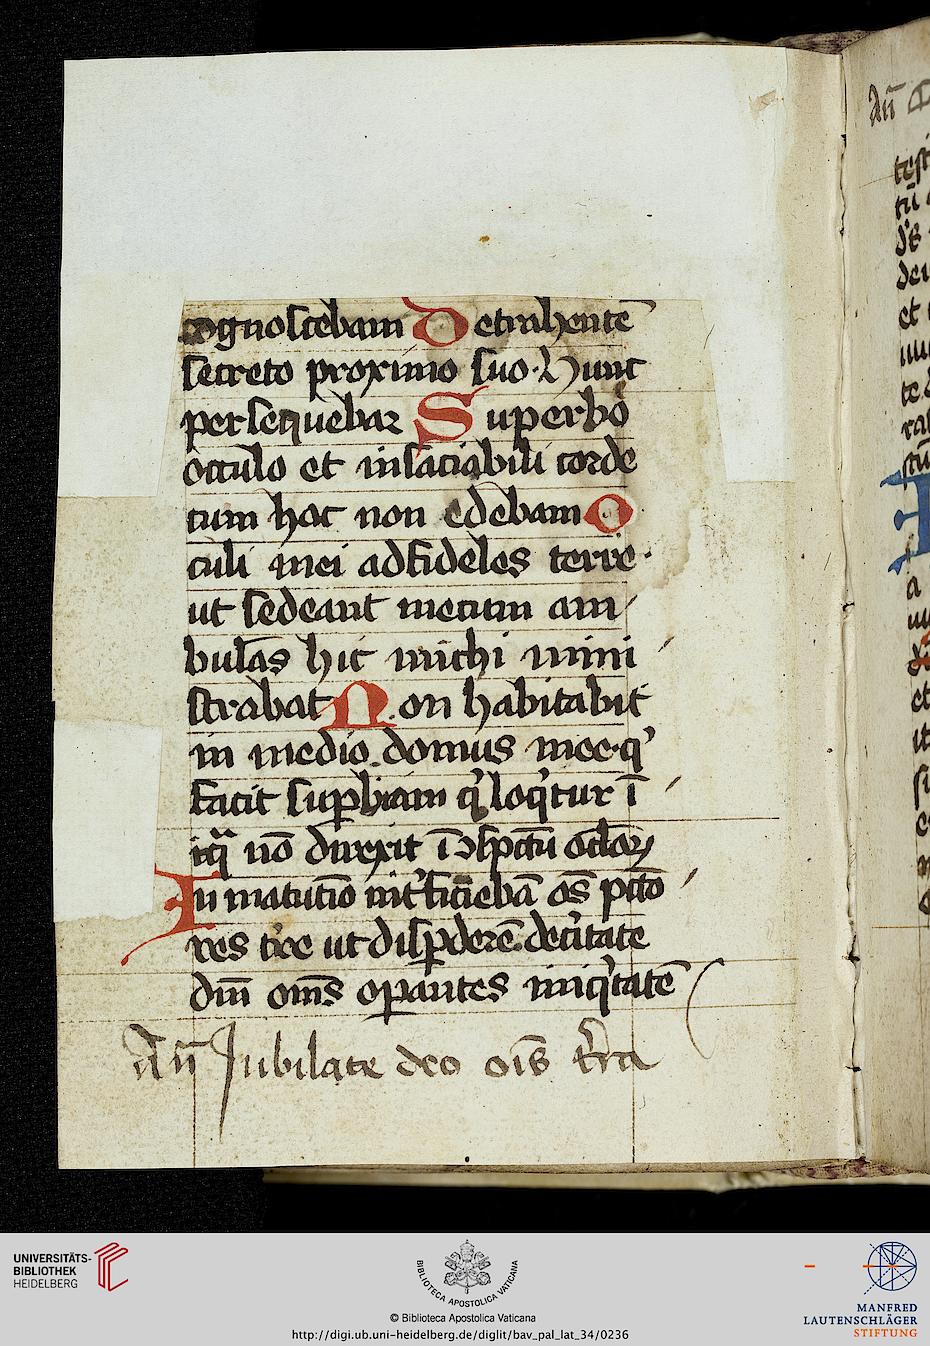 cognoscebam Detrahente᷒
secreto proximo suo · Hunc
persequebar Superbo
occulo et insaciabili corde
cum hoc non edebam O
culi mei ad fideles terre ·
ut sedeant mecum am/
bulās hic michi mini /
strabat Non habitabit
in medio domus mee · q'
facit sup̱biam q̇ loq'tur ī /
iq̄ nō direxit ī ɔsp̄ctū oclor̨
In matutīo int'ficiebā oēs pctō /
res t're ut disp̱derē de c'itate
dn̄i om̄s op̱antes iniq'tatē
An̄ Jubilate deo oīs t'ra
An̄
UNIVERSITÄTS-
BIBLIOTHEK
HEIDELBERG
BIBLIOTECA APOSTOLICA VATICANA
© Biblioteca Apostolica Vaticana
http://digi.ub.uni-heidelberg.de/diglit/bav_pal_lat_34/0236
MANFRED
LAUTENSCHLÄGER
STIFTUNG